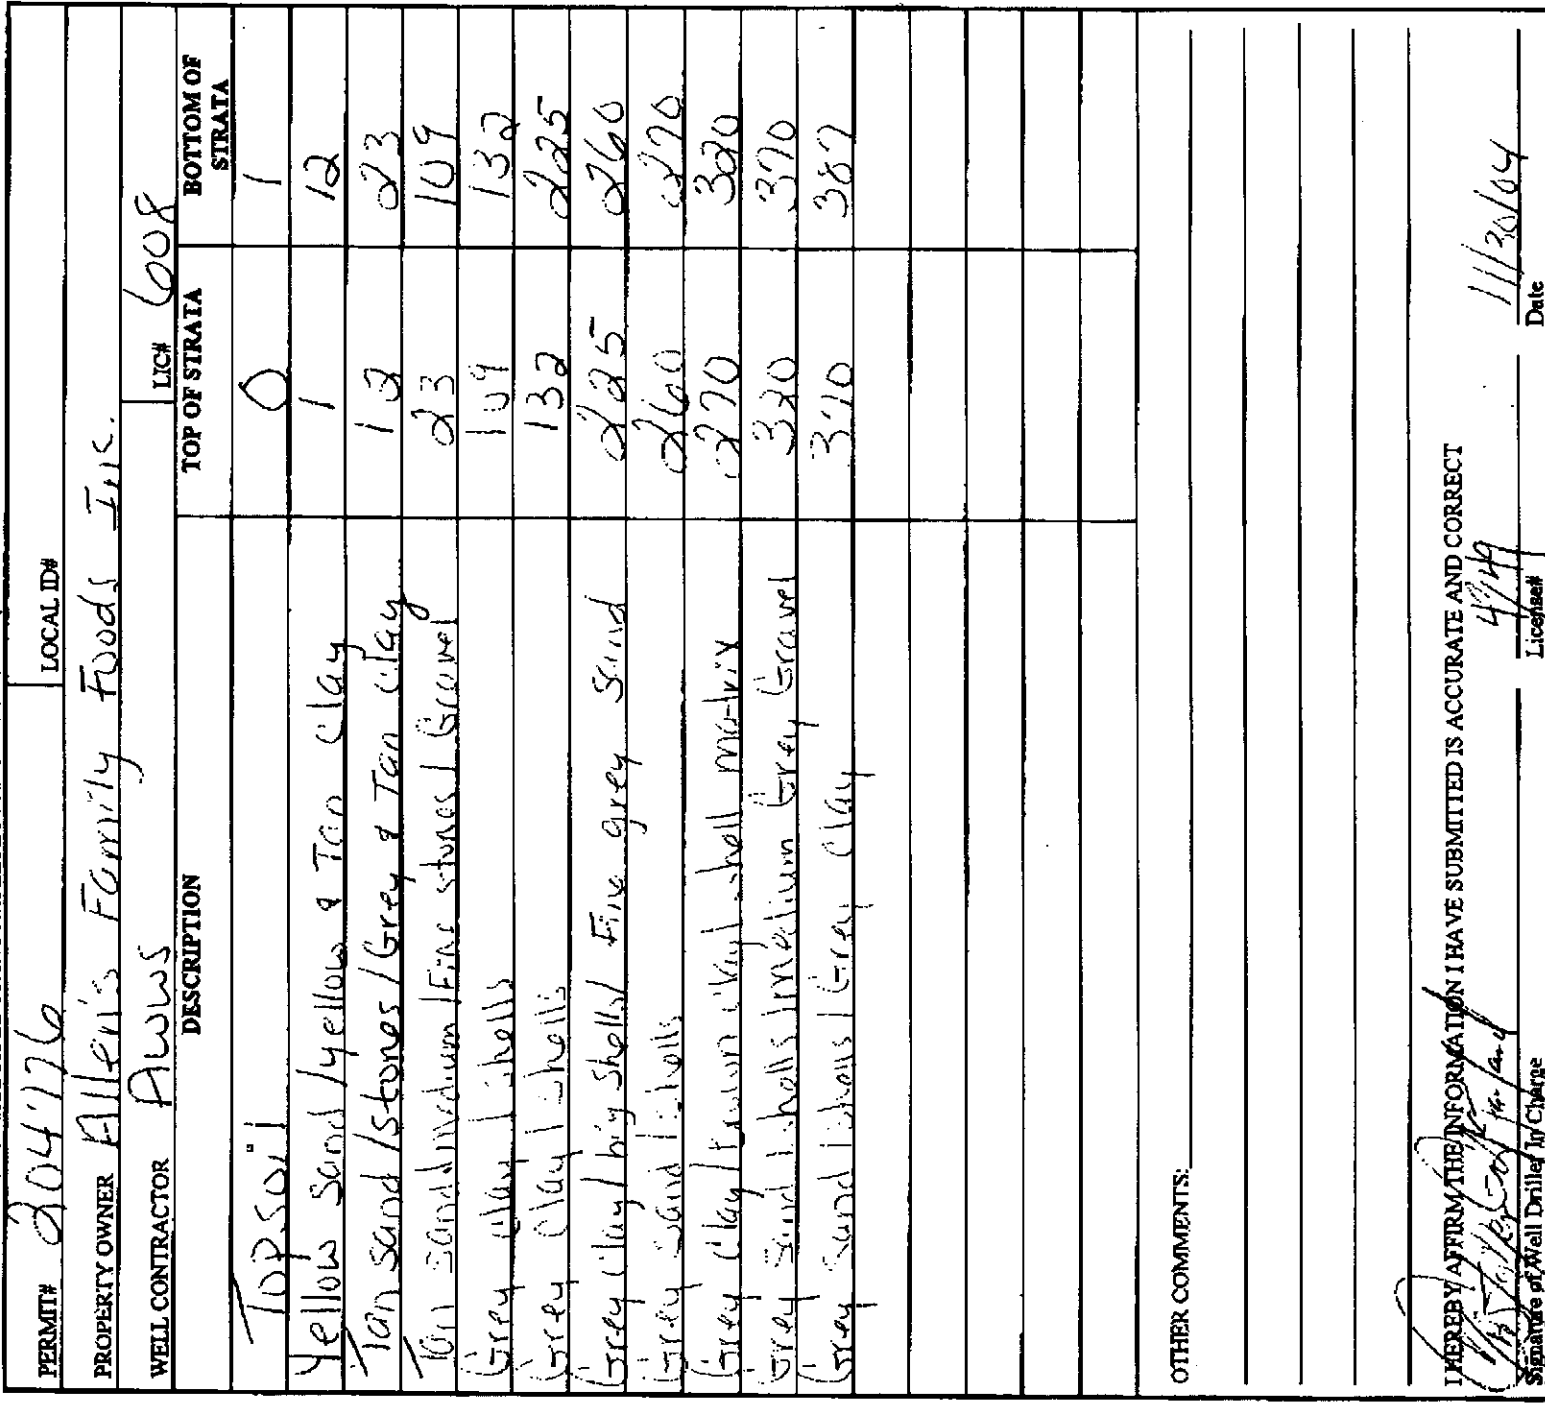 PERMIT# 204776 LOCAL ID#
PROPERTY OWNER Allen's Family Foods Inc.
WELL CONTRACTOR AWWS LIC# 608
DESCRIPTION TOP OF STRATA BOTTOM OF STRATA
Topsoil 0 1
Yellow Sand / yellow & Tan Clay 1 12
Tan Sand / stones / Grey & Tan Clay 12 23
Tan sand / medium / Fine stones / Gravel 23 109
Grey clay / shells 109 132
Grey clay / shells 132 225
Grey Clay / big shells / Fine grey Sand 225 260
Grey Sand / shells 260 270
Grey Clay / shell matrix 270 320
Grey Sand / shells / medium Grey Gravel 320 370
Grey Sand / shells / Grey Clay 370 387
OTHER COMMENTS:
I HEREBY AFFIRM THE INFORMATION I HAVE SUBMITTED IS ACCURATE AND CORRECT
11/30/04
Signature of Well Driller In Charge License# Date